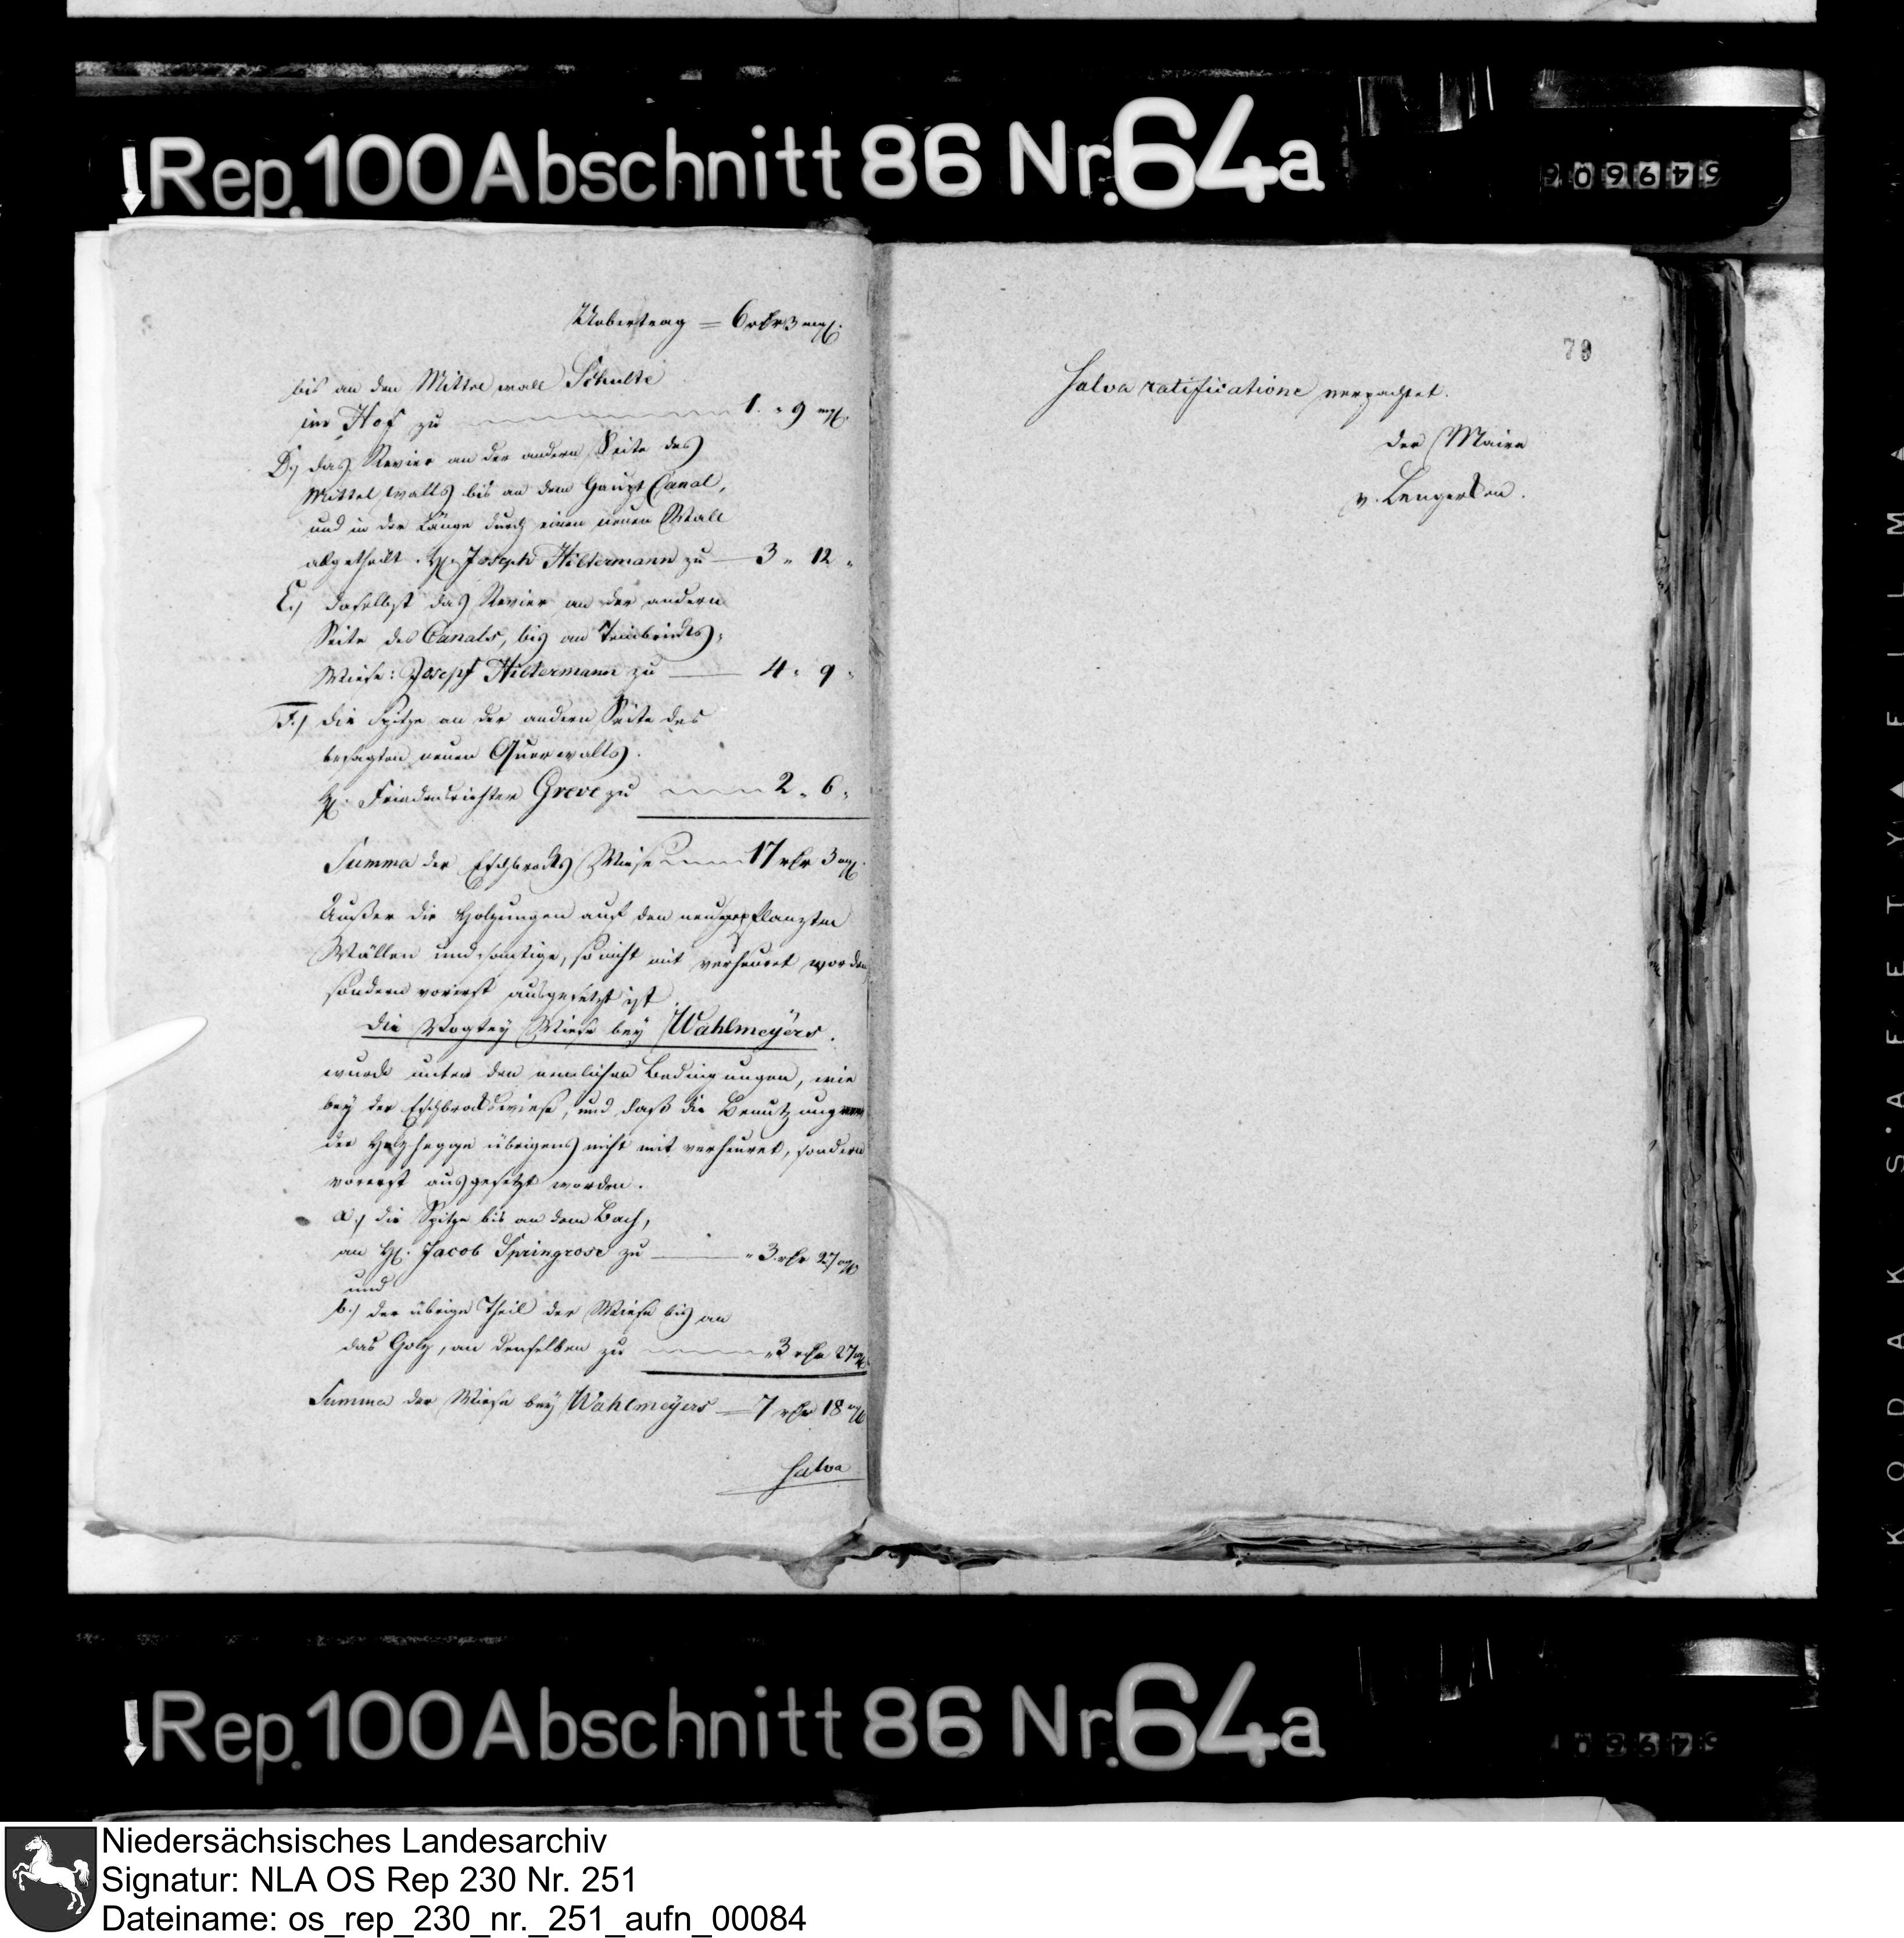 Rep. 100 Abschnitt 86 Nr. 64a
649606
Uebertrag = 6 rthr 3 mg.
bis an den Mittel wall Schulte
im Hof zu 1. " 9 mg.
D.) das Revier an der andern Seite des
Mittel walls bis an dem Haupt Canal,
und in der Länge durch einen neuen Wall
abgetheilt. H. Joseph Hiltermann zu 3 " 12 "
E.) daselbst das Revier an der andern
Seite des Canals, bis an
Wiese: Joseph Hiltermann zu 4 " 9 "
F.) die Spitze an der andern Seite des
besagten neuen Querwalls.
H. Friedensrichter Greve zu 2 " 6 "
Summa der Eschbrocks Wiese 17 rthr 3 mg.
Außer die Holzungen auf den neugepflanzten
Wällen und sonstige, so nicht mit verheuret worden
sondern vorerst ausgesetzt ist
Die Vogtey Wiese bey Wahlmeyers.
wurde unter den nemlichen Bedingungen, wie
bey der Eschbrockswiese, und daß die Benutzung
der Holzhegge übrigens nicht mit verheuret, sondern
vorerst ausgesetzt worden.
a.) die Spitze bis an dem Bach,
an H. Jacob Springrose zu " 3 rthr 27 mg
und
b.) der übrige Theil der Wiese bis an
das Holz, an denselben zu " 3 rthr 27 mg
Summa der Wiese bey Wahlmeyers 7 rthr 18 mg
Salva
79
Salva ratificatione verpachtet.
Der Maire
v. Lengerken.
KODAK SAFETY FILM
Rep. 100 Abschnitt 86 Nr. 64a
Niedersächsisches Landesarchiv
Signatur: NLA OS Rep 230 Nr. 251
Dateiname: os_rep_230_nr._251_aufn_00084